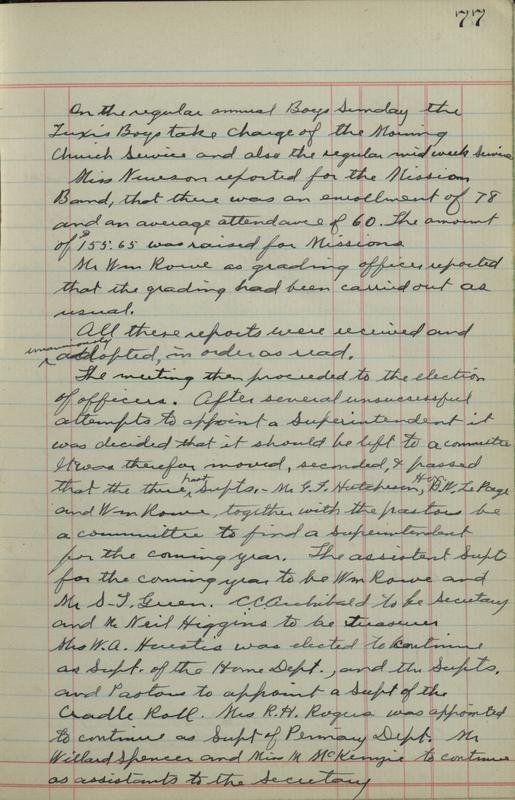 77
On the regular annual Boys Sunday the
Tuxis Boys take charge of the Morning
Church Service and also the regular mid week service
Miss Newson reported for the Mission
Band, that there was an enrollment of 78
and an average attendance of 60. The amount
of $155.65 was raised for Missions
Mr Wm Rowe as grading officer reported
that the grading had been carried out as
usual.
All these reports were received and
unanimously
adopted, in order as read.
The meeting then proceeded to the election
of officers. After several unsuccessful
attempts to appoint a Superintendent it
was decided that it should be left to a committee
It was therefor moved, seconded, & passed
that the three past Supts, - Mr F. F. Hutcheson, B.W. Le Page
and Wm Rowe, together with the pastors be
a committee to find a Superintendent
for the coming year. The assistent Supt
for the coming year to be Wm Rowe and
Mr S-T. Green. C.C. Archibald to be Secretary
and Mr Neil Higgins to be Treasurer
Mrs W.A. Huestis was elected to continue
as Supt. of the Home Dept., and the Supts.
and Pastors to appoint a Supt of the
Cradle Roll. Mrs R.H. Rogers was appointed
to continue as Supt of Permary Dept. Mr
Willard Spencer and Miss M McKenzie to continue
as assistants to the Secretary